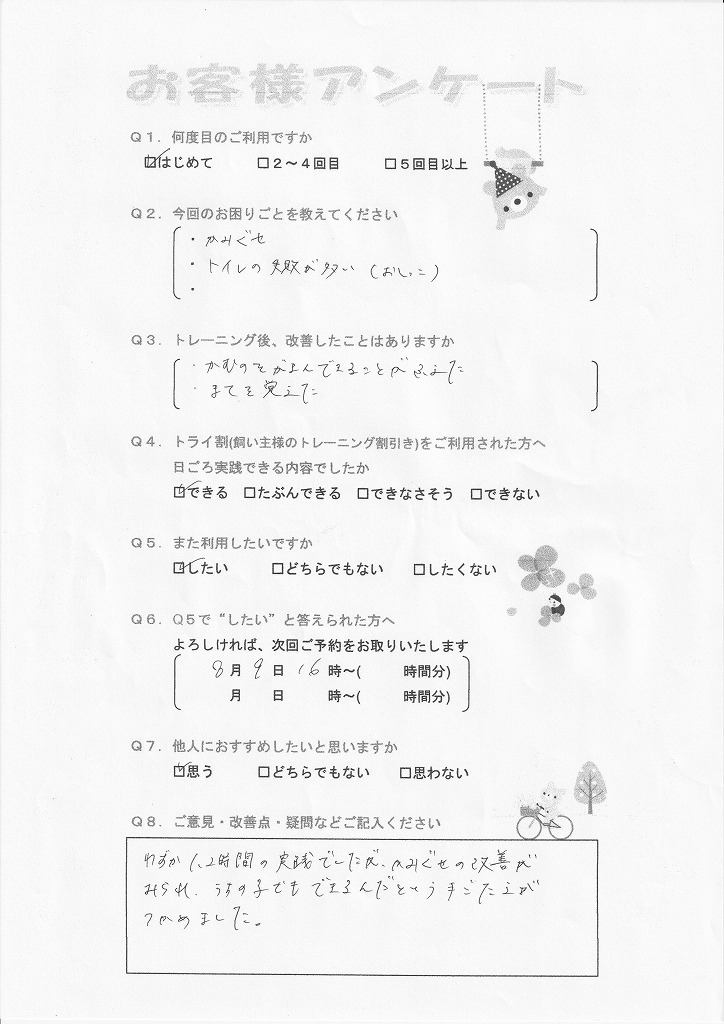 お客様アンケート
Q1．何度目のご利用ですか
☑はじめて　□2～4回目　□5回目以上
Q2．今回のお困りごとを教えてください
・かみぐせ
・トイレの失敗が多い（おしっこ）
・
Q3．トレーニング後、改善したことはありますか
・かむのをがまんできることがふえた
・まてを覚えた
Q4．トライ割(飼い主様のトレーニング割引き)をご利用された方へ
日ごろ実践できる内容でしたか
☑できる　□たぶんできる　□できなさそう　□できない
Q5．また利用したいですか
☑したい　□どちらでもない　□したくない
Q6．Q5で“したい”と答えられた方へ
よろしければ、次回ご予約をお取りいたします
8月 9日 16時～(　　時間分)
月　日　時～(　　時間分)
Q7．他人におすすめしたいと思いますか
☑思う　□どちらでもない　□思わない
Q8．ご意見・改善点・疑問などご記入ください
わずか1、2時間の実践でしたが、かみぐせの改善が
みられ、うちの子でもできるんだという手ごたえが
つかめました。